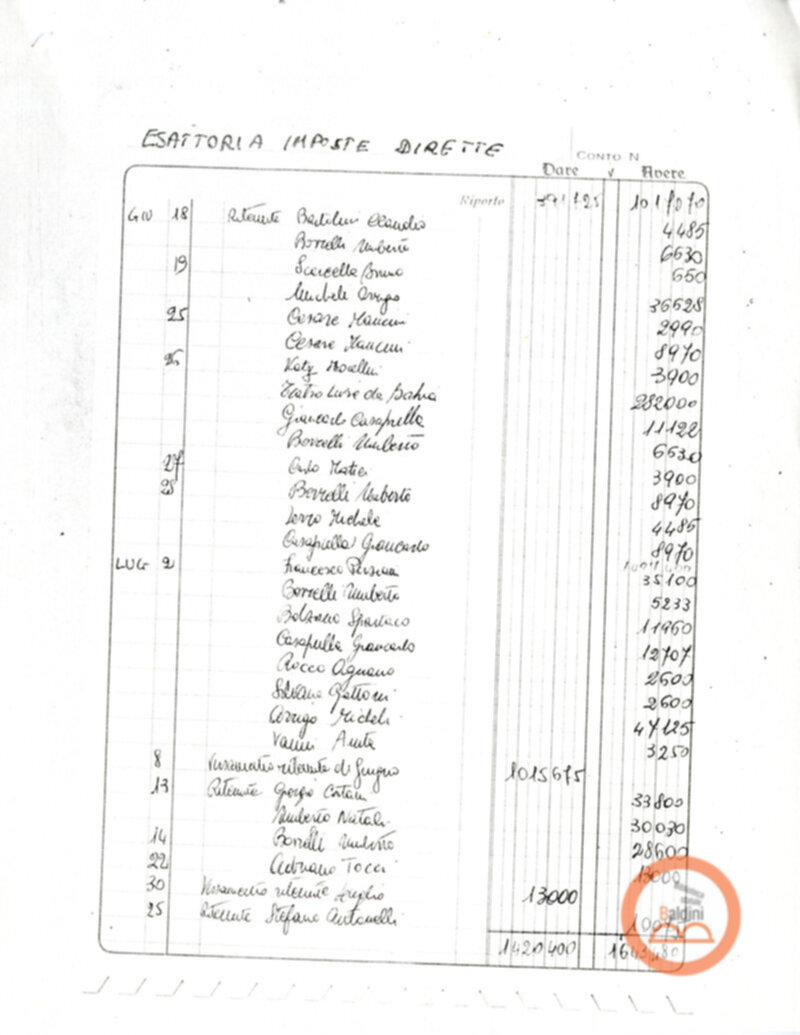 ESATTORIA IMPOSTE DIRETTE
CONTO N
Dare Avere
Riporto 391725 1017070
GIU 18 Ritenute Claudio 4485
Borrelli Umberto 6630
19 Scarcella Bruno 650
Michele Arrigo 36628
25 Cesare Mancini 2990
Cesare Mancini 8970
25 Katy 3900
Teatro Luise de Bahia 282000
Giancarlo Casapiella 11122
Borrelli Umberto 6630
27 Carlo 3900
28 Borrelli Umberto 8970
Michele 4485
Casapiella Giancarlo 8970
LUG 2 Francesco 35100
Borrelli Umberto 5233
Bolzano Spartaco 11960
Casapiella Giancarlo 12707
Rocco Agnano 2600
2600
Arrigo Micheli 47125
Vanni Anita 3250
8 Versamento ritenute di Giugno 1015675
13 Ritenute Giorgio 33800
Umberto Natali 30030
14 Borrelli Umberto 28600
22 Adriano Tocci 13000
30 Versamento ritenute Luglio 13000
25 Ritenute Stefano Antonelli
1420400 1643480
Baldini